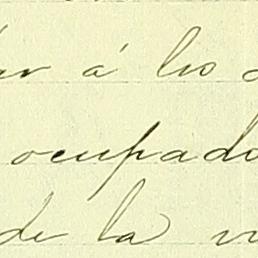 á los
ocupado
de la